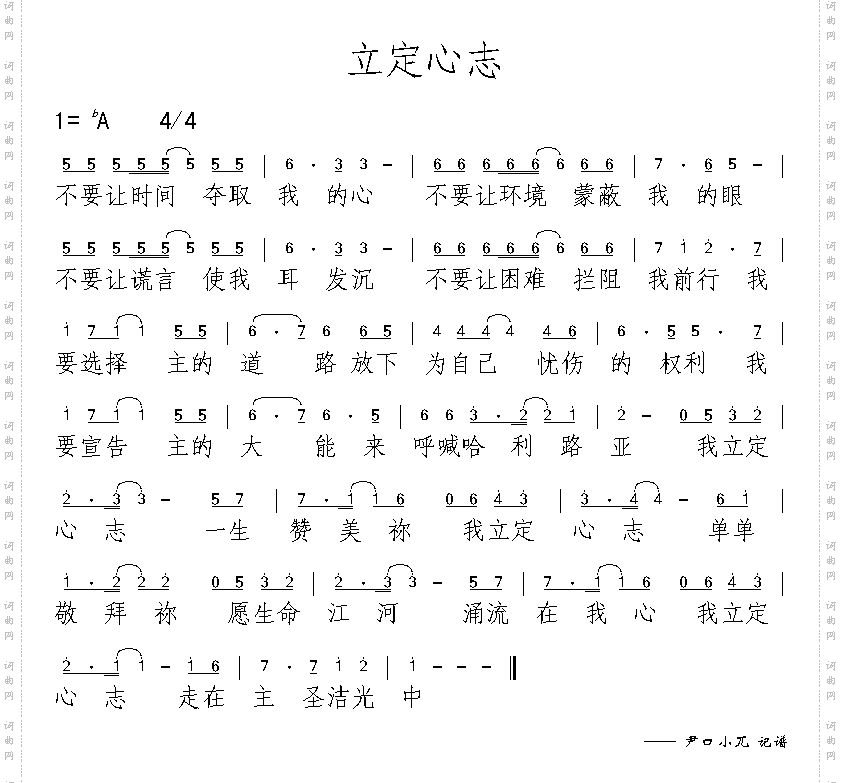 立定心志
1= ᵇA 4/4
5 5 5 5 5 5 5 5 | 6 · 3 3 - | 6 6 6 6 6 6 6 6 | 7 · 6 5 - |
不要让时间 夺取 我 的心 不要让环境 蒙蔽 我 的眼
5 5 5 5 5 5 5 5 | 6 · 3 3 - | 6 6 6 6 6 6 6 6 | 7 1 2 · 7 |
不要让谎言 使我 耳 发沉 不要让困难 拦阻 我前行 我
1 7 1 1 5 5 | 6 · 7 6 6 5 | 4 4 4 4 4 6 | 6 · 5 5 · 7 |
要选择 主的 道 路放下 为自己 忧伤 的 权利 我
1 7 1 1 5 5 | 6 · 7 6 · 5 | 6 6 3 · 2 2 1 | 2 - 0 5 3 2 |
要宣告 主的 大 能来 呼喊哈 利路亚 我立定
2 · 3 3 - 5 7 | 7 · 1 1 6 0 6 4 3 | 3 · 4 4 - 6 1 |
心 志 一生 赞 美 祢 我立定 心 志 单单
1 · 2 2 2 0 5 3 2 | 2 · 3 3 - 5 7 | 7 · 1 1 6 0 6 4 3 |
敬 拜 祢 愿生命 江 河 涌流 在 我 心 我立定
2 · 1 1 - 1 6 | 7 · 7 1 2 | 1 - - - ‖
心 志 走在 主 圣洁光 中
—— 尹口小兀 记谱
词曲网